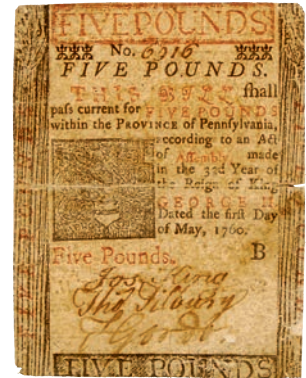 FIVE POUNDS
No. 6316
FIVE POUNDS.
THIS BILL shall
paſs current for FIVE POUNDS
within the PROVINCE of Pennſylvania,
ccording to an Act
of Aſſembly made
in the 33d Year of
the Reign of King
GEORGE II.
Dated the firſt Day
of May, 1760.
Five Pounds. B
King
FIVE POUNDS